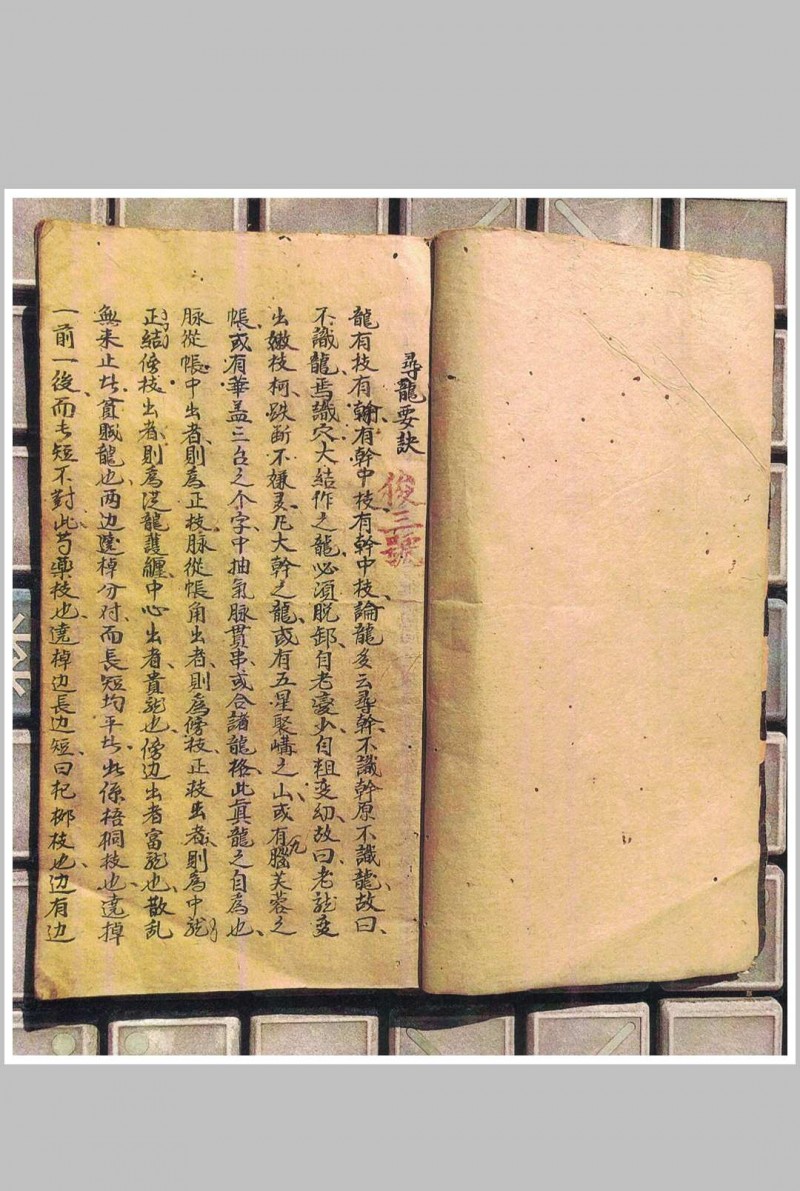 尋龍要訣
俊三號
龍有枝有幹有幹中枝有幹中枝論龍多云尋幹不識幹原不識龍故曰
不識龍焉識穴大結作之龍必須脫卸自老变少自粗变幼故曰老龙变
出嫩枝柯跌断不嫌灵凡大幹之龍或有五星聚講之山或有九腦芙蓉之
帳或有華盖三台之个字中抽氣脉貫串或合諸龍格此真龍之自為也
脉從帳中出者則為正枝脉從帳角出者則為傍枝正枝出者則為中龙
正結傍枝出者則為從龍護纏中心出者貴龙也傍边出者富龙也散乱
無来止此貧贱龍也两边遶棹分对而長短均平此係梧桐枝也遶棹
一前一後而長短不對此芍藥枝也遶棹边長边短曰杞柳枝也边有边